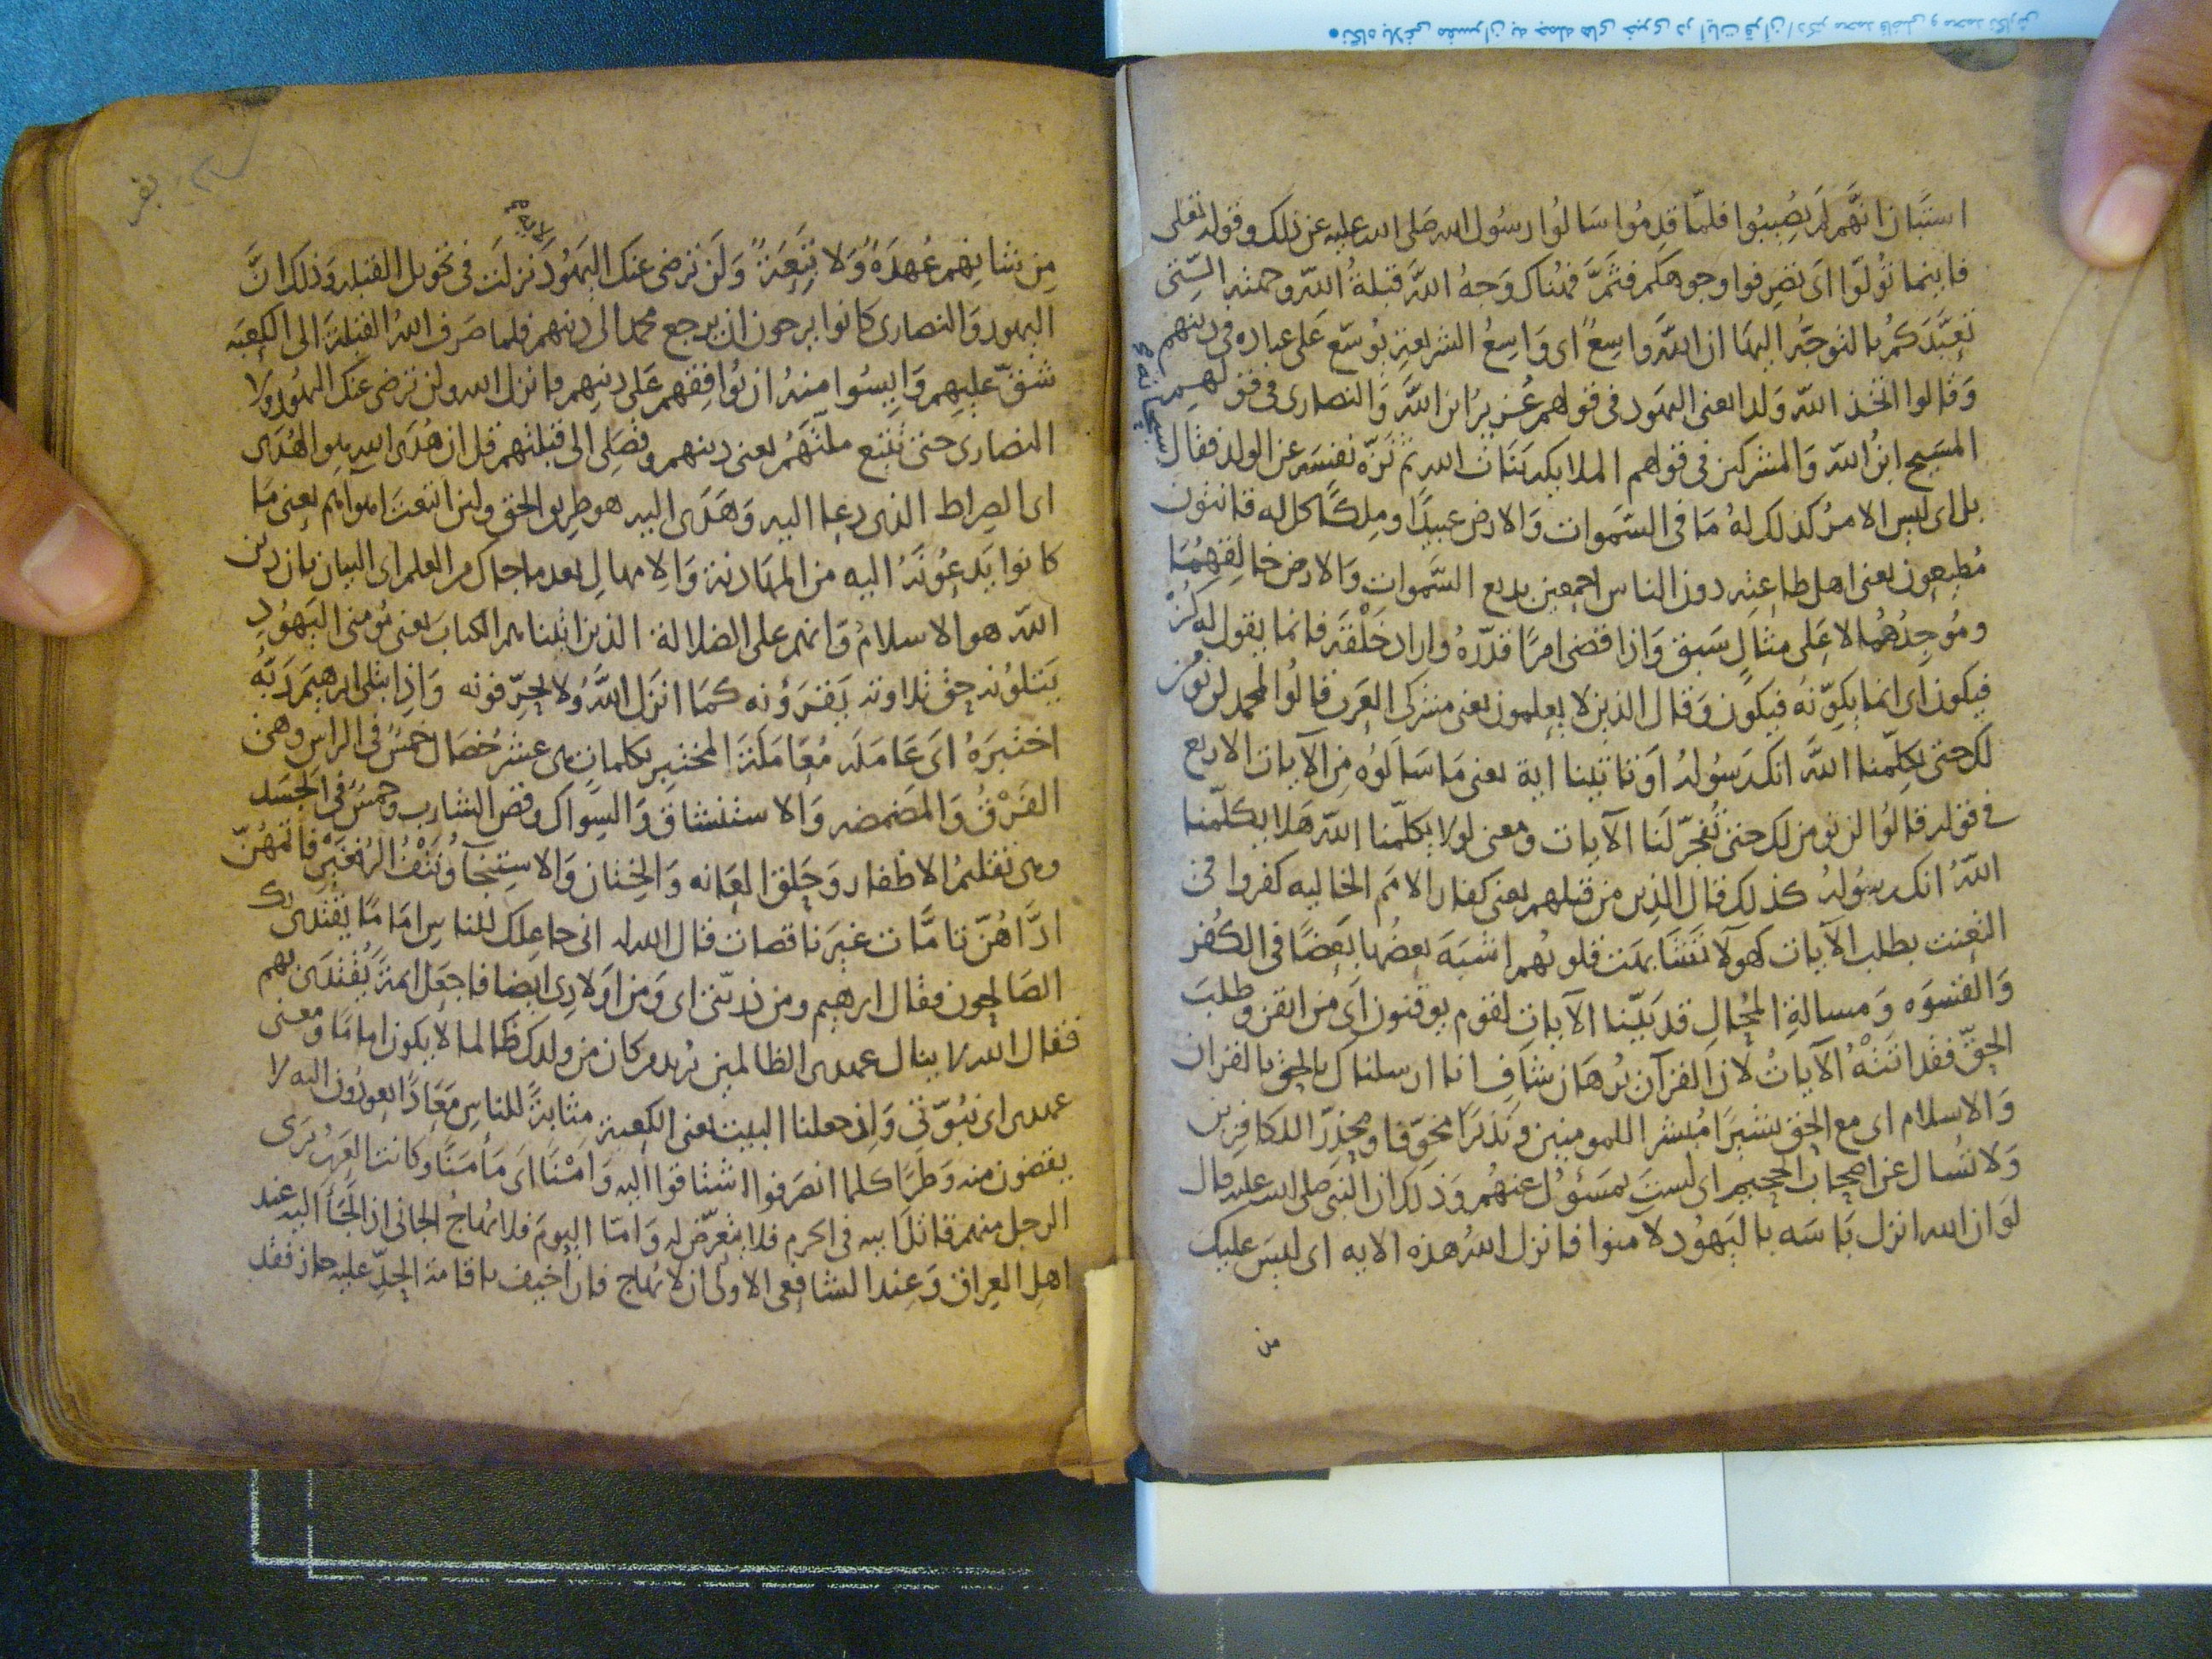 استبان انهم لم يصيبوا فلما قدموا سالوا رسول الله صلى الله عليه عن ذلك وقوله تعلى
فاينما تولوا اى تصرفوا وجوهكم فثم فهناك وجه الله قبلة الله وجهته التى
تعبدكم بالتوجه اليها ان الله واسع اى واسع الشريعة يوسع على عباده فى دينهم
وقالوا اتخذ الله ولدا يعنى اليهود فى قولهم عزير ابن الله والنصارى فى قولهم
المسيح ابن الله والمشركين فى قولهم الملايكه بنات الله ثم نزه نفسه عن الولد فقال سبحانه
بل اى ليس الامر كذلك له ما فى السموات والارض عبيدا وملكا كل له قانتون
مطيعون يعنى اهل طاعته دون الناس اجمعين بديع السموات والارض خالقهما
وموجدهما لا على مثال سبق واذا قضى امرا قدره واراد خلقه فانما يقول له كن
فيكون اى انما يكونه فيكون وقال الذين لا يعلمون يعنى مشركى العرب قالوا لمحمد لن نومن
لك حتى يكلمنا الله انك رسوله او تاتينا اية يعنى ما سالوه من الآيات الاربع
فى قوله قالوا لن نومن لك حتى تفجر لنا الآيات ومعنى لولا يكلمنا الله هلا يكلمنا
الله انك رسوله كذلك قال الذين من قبلهم يعنى كفار الامم الخاليه كفروا فى
التعنت بطلب الآيات كهولا تشابهت قلوبهم اشبه بعضها بعضا فى الكفر
والقسوه ومسالة المحال قد بينا الآيات لقوم يوقنون اى من ايقن وطلب
الحق فقد اتته الآيات لان القرآن برهان شاف انا ارسلناك بالحق بالقران
والاسلام اى مع الحق بشيرا مبشرا للمومنين ونذيرا مخوفا ومحذرا للكافرين
ولا تسال عن اصحاب الجحيم اى لست بمسؤل عنهم وذلك ان النبى صلى الله عليه قال
لو ان الله انزل باسه باليهود لآمنوا فانزل الله هذه الايه اى ليس عليك
من
بقر
من شانهم عهدة ولا تبعة ولن ترضى عنك اليهود الآية نزلت فى تحويل القبله وذلك ان
اليهود والنصارى كانوا يرجون ان يرجع محمد الى دينهم فلما صرف الله القبلة الى الكعبه
شق عليهم وايسوا منه ان يوافقهم على دينهم فانزل الله ولن ترضى عنك اليهود ولا
النصارى حتى تتبع ملتهم يعنى دينهم وتصلى الى قبلتهم قل ان هدى الله هو الهدى
اى الصراط الذى دعا اليه وهدى اليه هو طريق الحق ولين اتبعت اهواهم يعنى ما
كانوا يدعونه اليه من المهادنة والامهال بعد ما جاك من العلم اى البيان بان دين
الله هو الاسلام وانهم على الضلالة الذين اتيناهم الكتاب يعنى مومنى اليهود
يتلونه حق تلاوته يقرؤنه كما انزل الله ولا يحرفونه واذ ابتلى ابرهيم ربه
اختبره اى عامله معاملة المختبر بكلمات هى عشر خصال خمس فى الراس وهى
الفرق والمضمضه والاستنشاق والسواك وقص الشارب وخمس فى الجسد
وهى تقليم الاظفار وحلق العانه والختان والاستنجا ونتف الرفغين فاتمهن
اداهن تامات غير ناقصات قال الله له انى جاعلك للناس اماما يقتدى بك
الصالحون فقال ابرهيم ومن ذريتى اى ومن اولادى ايضا فاجعل ايمة يقتدى بهم
فقال الله لا ينال عهدى الظالمين يريد من كان من ولدك ظالما لا يكون اماما ومعنى
عهدى اى نبوتى واذ جعلنا البيت يعنى الكعبة مثابة للناس معادا يعودون اليه لا
يقضون منه وطرا كلما انصرفوا اشتاقوا اليه وامنا اى مأمنا وكانت العرب يرى
الرجل منهم قاتل ابيه فى الحرم فلا يتعرض له واما اليوم فلا يهاج الجانى اذا التجأ اليه عند
اهل العراق وعند الشافعى الاولى ان لا يهاج فان اخيف باقامة الحد عليه جاز فقد